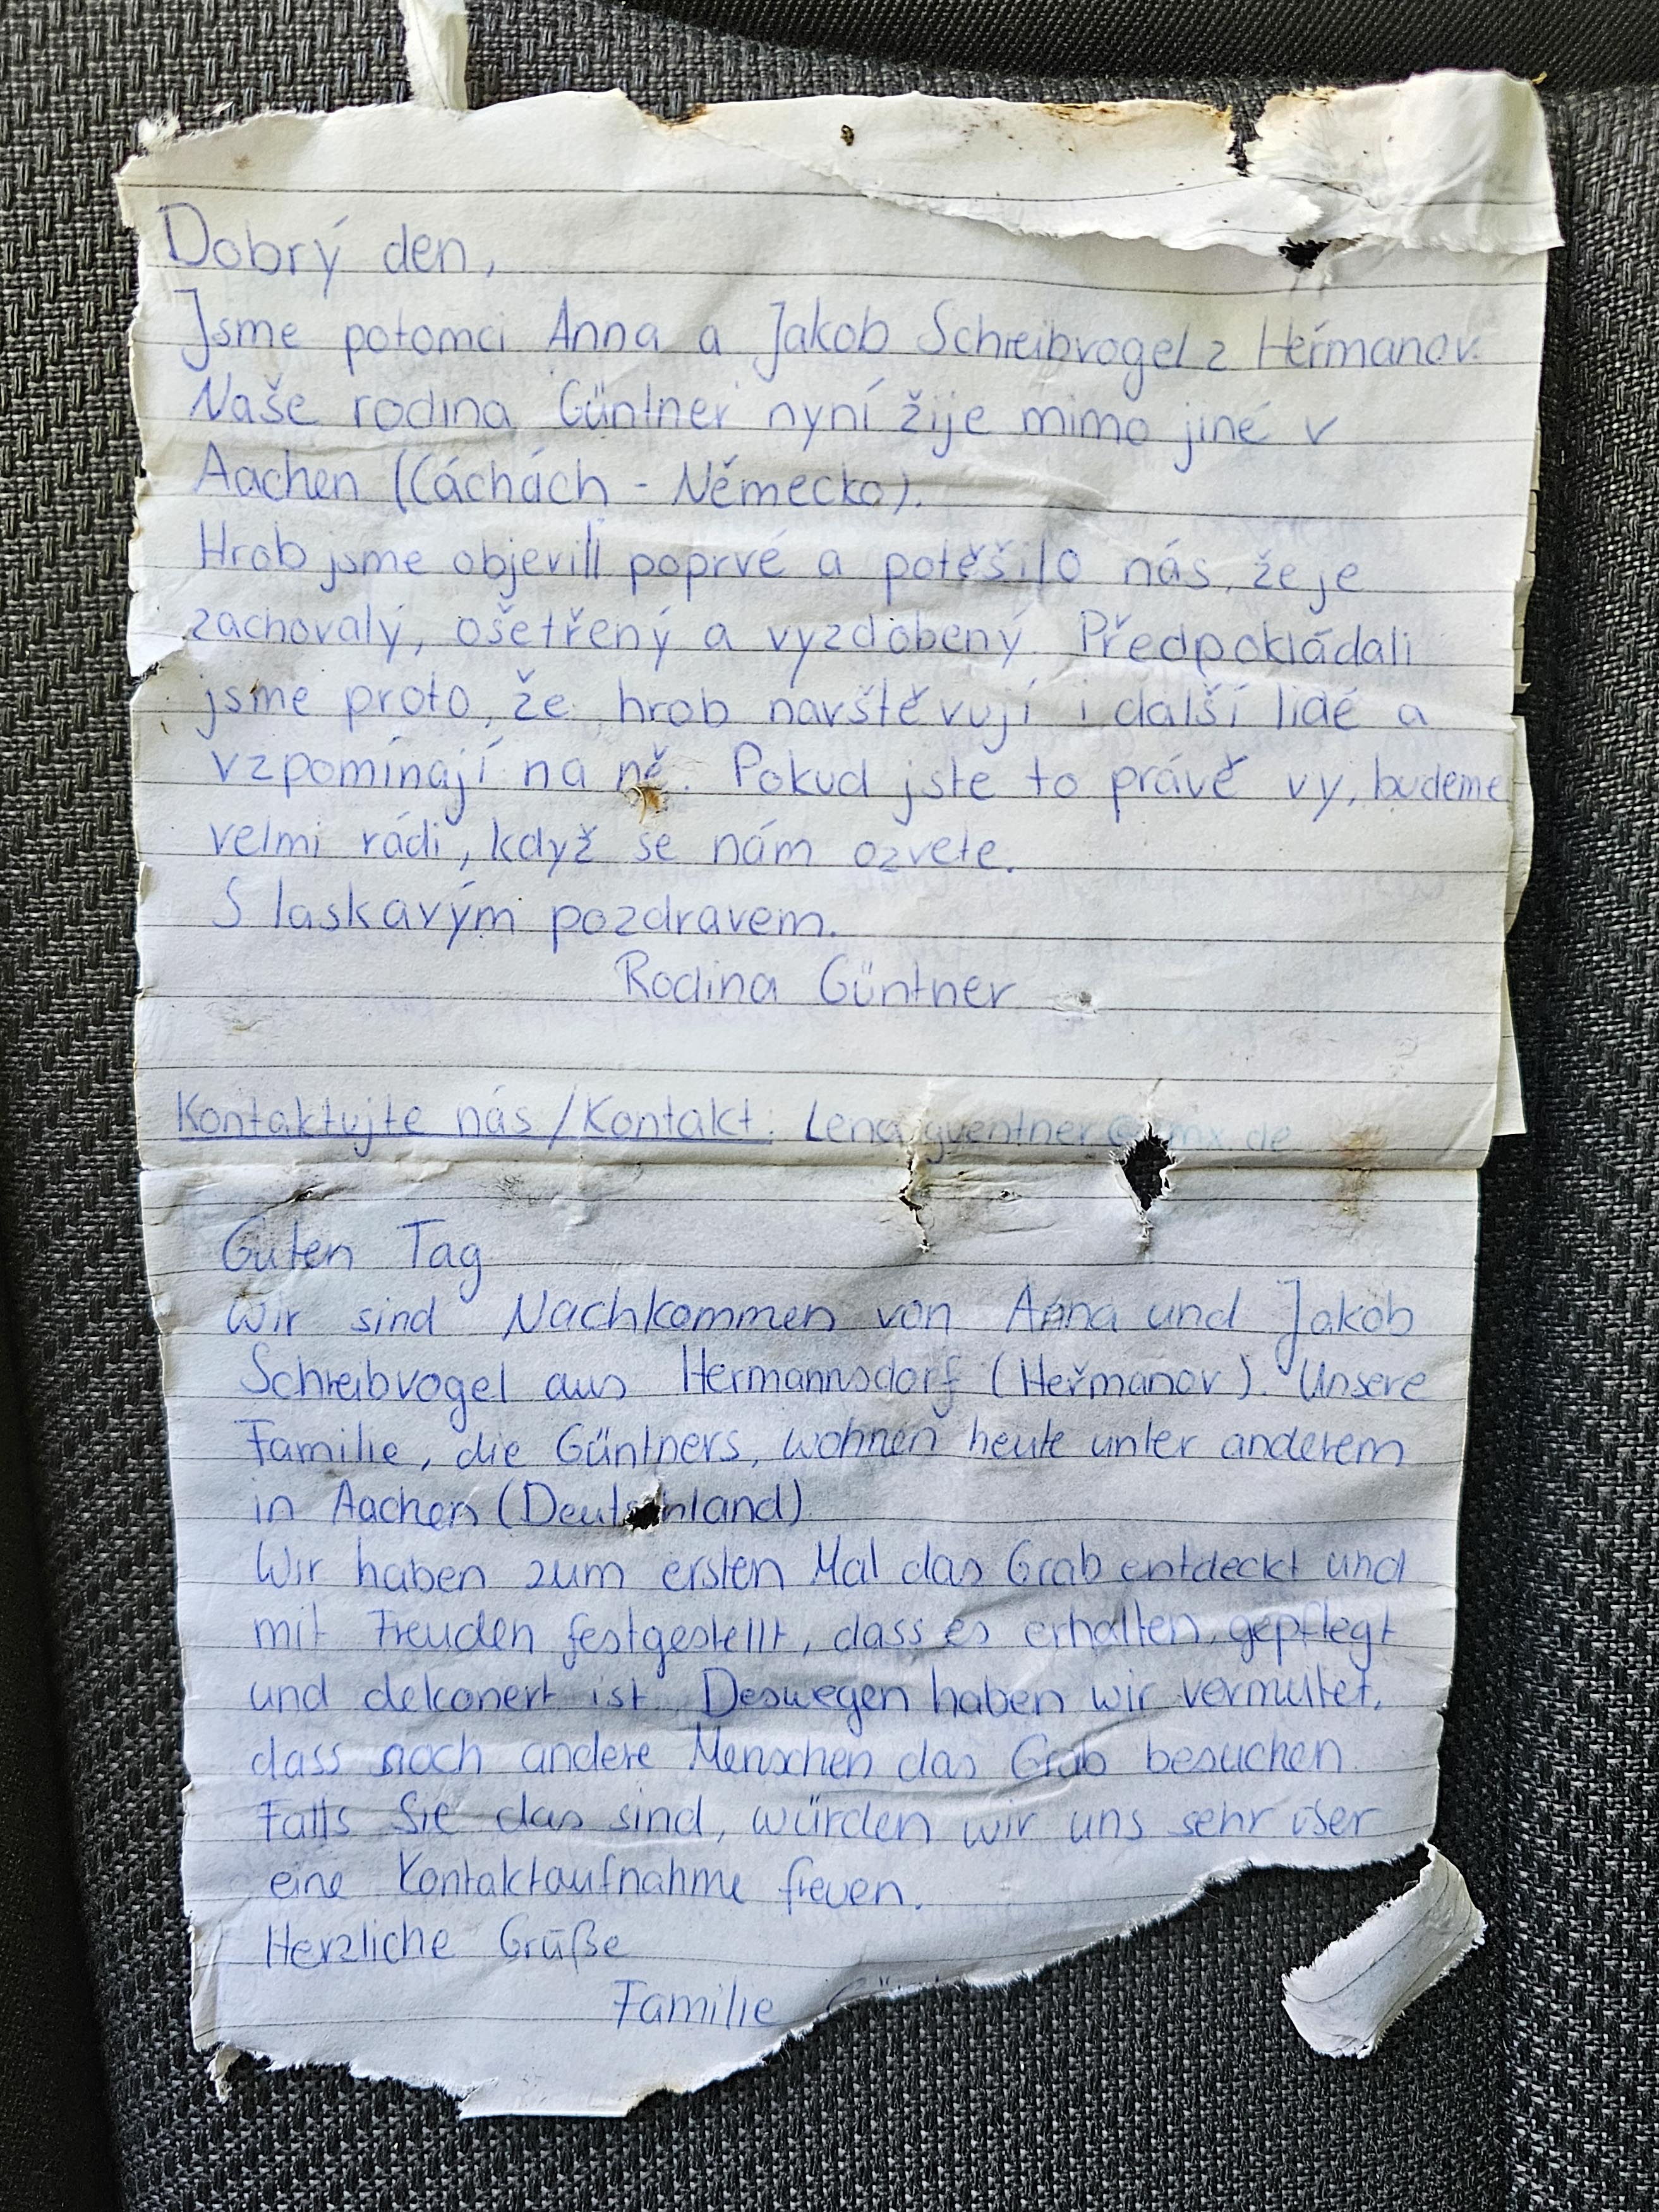 Dobrý den,
Jsme potomci Anna a Jakob Schreibvogel z Heřmanov.
Naše rodina Güntner nyní žije mimo jiné v
Aachen (Cáchách - Německo).
Hrob jsme objevili poprvé a potěšilo nás, že je
zachovalý, ošetřený a vyzdobený. Předpokládali
jsme proto, že hrob navštěvují i další lidé a
vzpomínají na ně. Pokud jste to právě vy, budeme
velmi rádi, když se nám ozvete.
S laskavým pozdravem.
Rodina Güntner
Kontaktujte nás / Kontakt:
Guten Tag
Wir sind Nachkommen von Anna und Jakob
Schreibvogel aus Hermannsdorf (Heřmanov). Unsere
Familie, die Güntners, wohnen heute unter anderem
in Aachen (Deutschland)
Wir haben zum ersten Mal das Grab entdeckt und
mit Freuden festgestellt, dass es erhalten, gepflegt
und dekoriert ist. Deswegen haben wir vermutet,
dass noch andere Menschen das Grab besuchen.
Falls Sie das sind, würden wir uns sehr über
eine Kontaktaufnahme freuen.
Herzliche Grüße
Familie